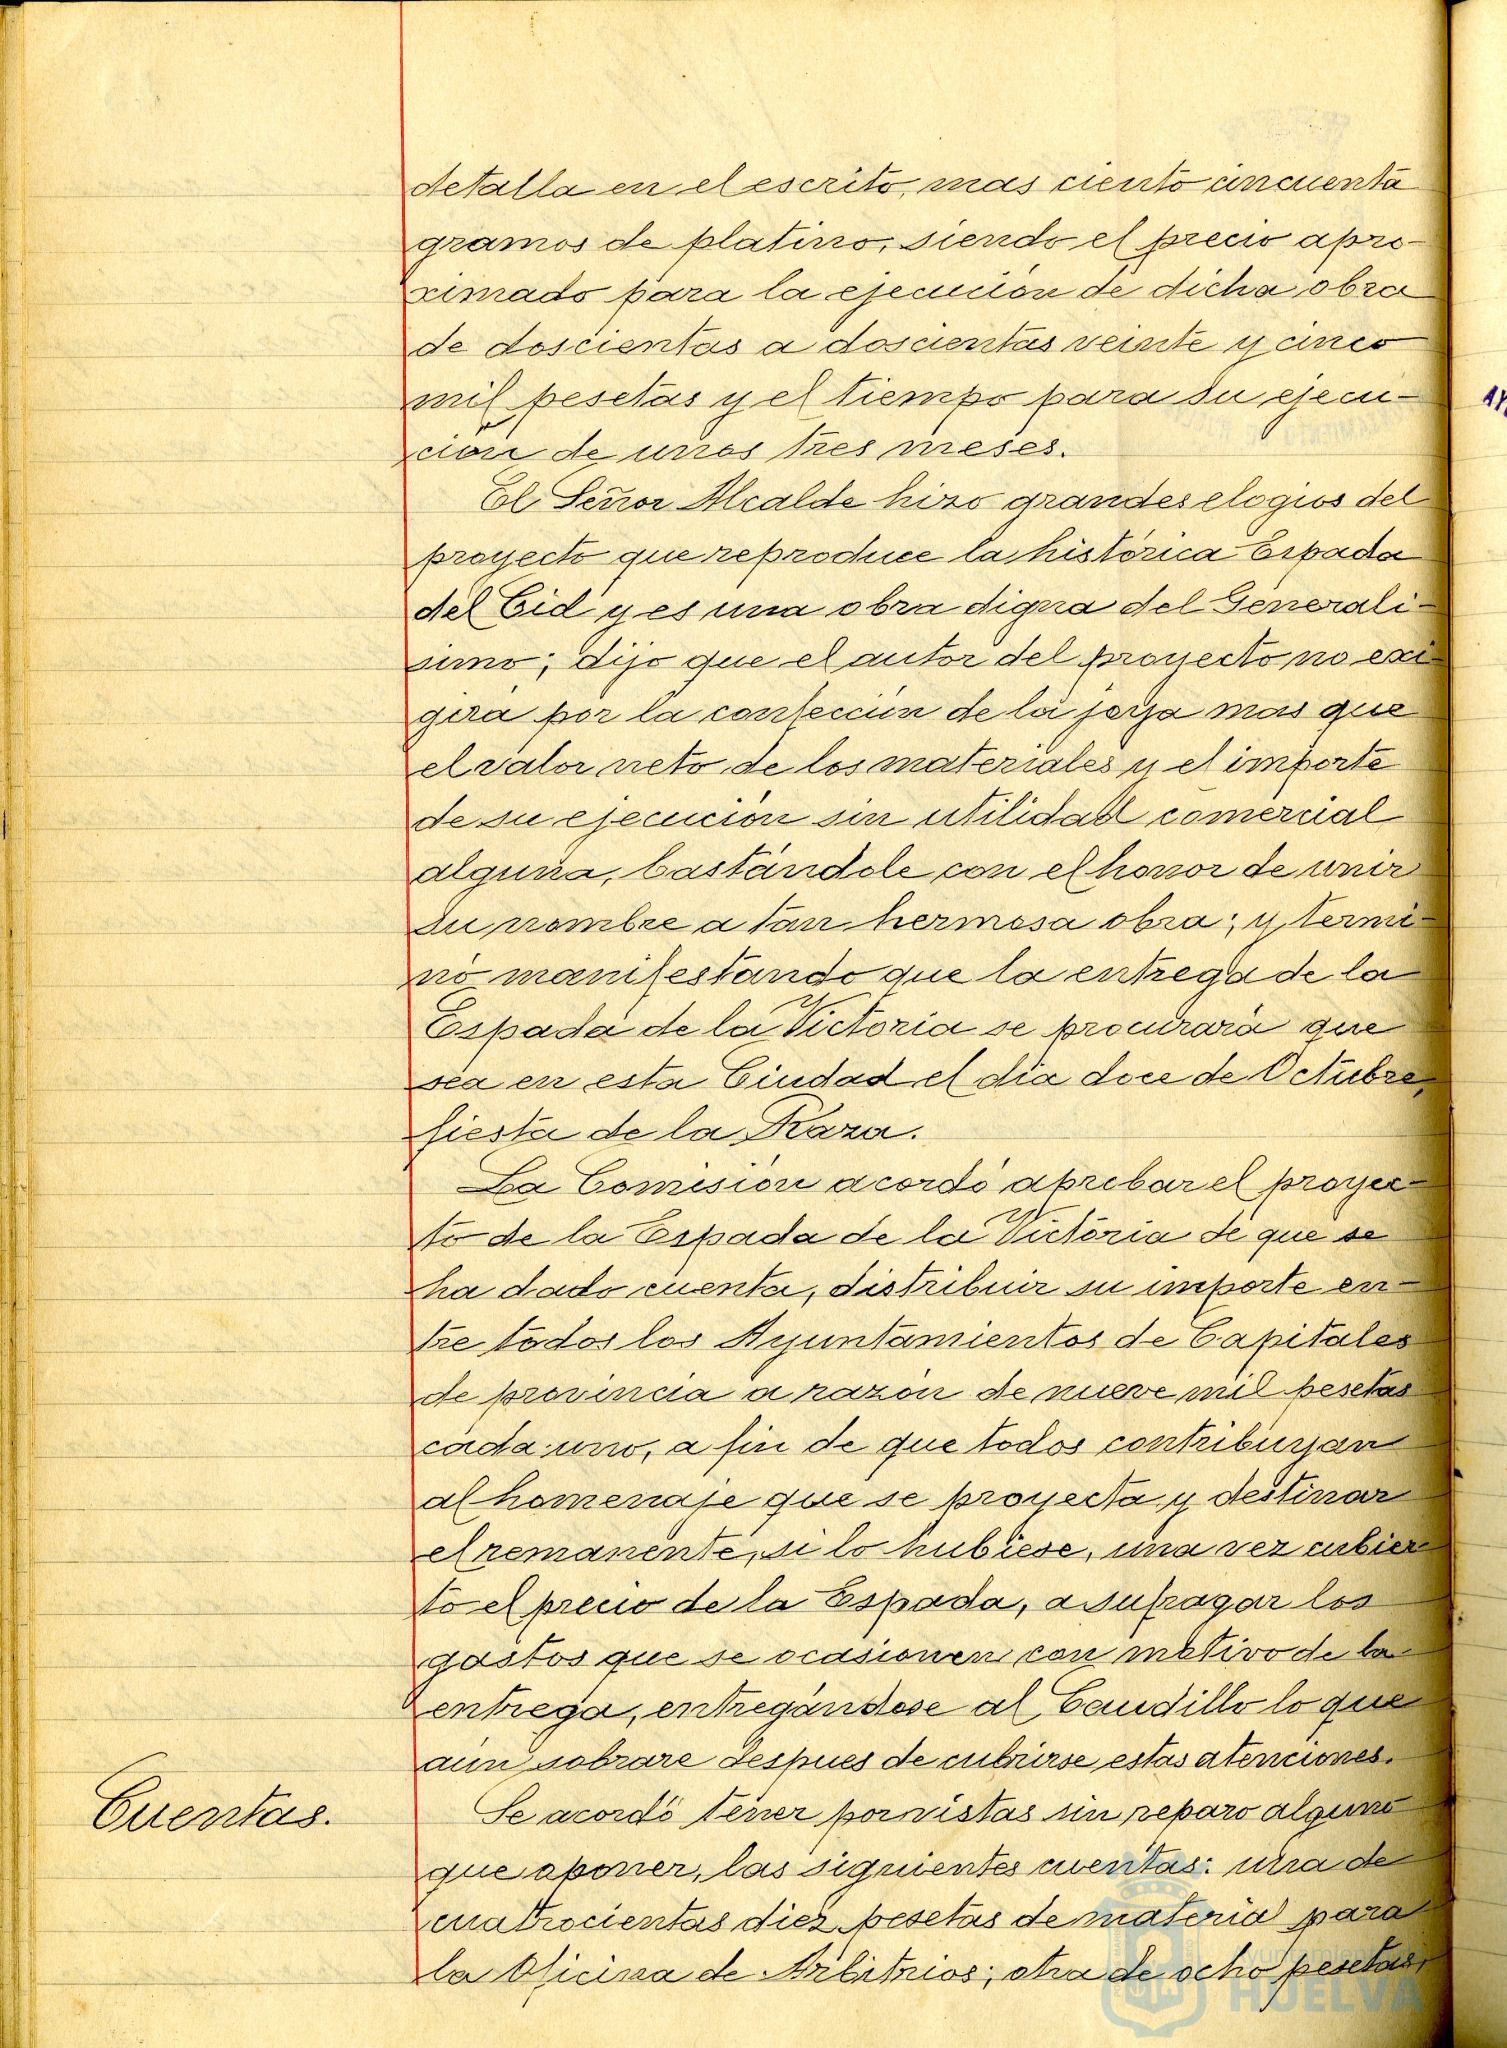 detalla en el escrito, mas ciento cincuenta
gramos de platino, siendo el precio apro-
ximado para la ejecución de dicha obra
de doscientas a doscientas veinte y cinco
mil pesetas y el tiempo para su ejecu-
ción de unos tres meses.
El Señor Alcalde hizo grandes elogios del
proyecto que reproduce la histórica Espada
del Cid y es una obra digna del Generali-
simo; dijo que el autor del proyecto no exi-
girá por la confección de la joya mas que
el valor neto de los materiales y el importe
de su ejecución sin utilidad comercial
alguna, bastándole con el honor de unir
su nombre a tan hermosa obra; y termi-
nó manifestando que la entrega de la
Espada de la Victoria se procurará que
sea en esta Ciudad el día doce de Octubre,
fiesta de la Raza.
La Comisión acordó aprobar el proyec-
to de la Espada de la Victoria de que se
ha dado cuenta, distribuir su importe en-
tre todos los Ayuntamientos de Capitales
de provincia a razón de nueve mil pesetas
cada uno, a fin de que todos contribuyan
al homenaje que se proyecta y destinar
el remanente, si lo hubiese, una vez cubier-
to el precio de la Espada, a sufragar los
gastos que se ocasionen con motivo de la
entrega, entregándose al Caudillo lo que
aún sobrare despues de cubrirse estas atenciones.
Cuentas.
Se acordó tener por vistas sin reparo alguno
que oponer, las siguientes cuentas: una de
cuatrocientas diez pesetas de material para
la Oficina de Arbitrios; otra de ocho pesetas,
Ayuntamiento
HUELVA